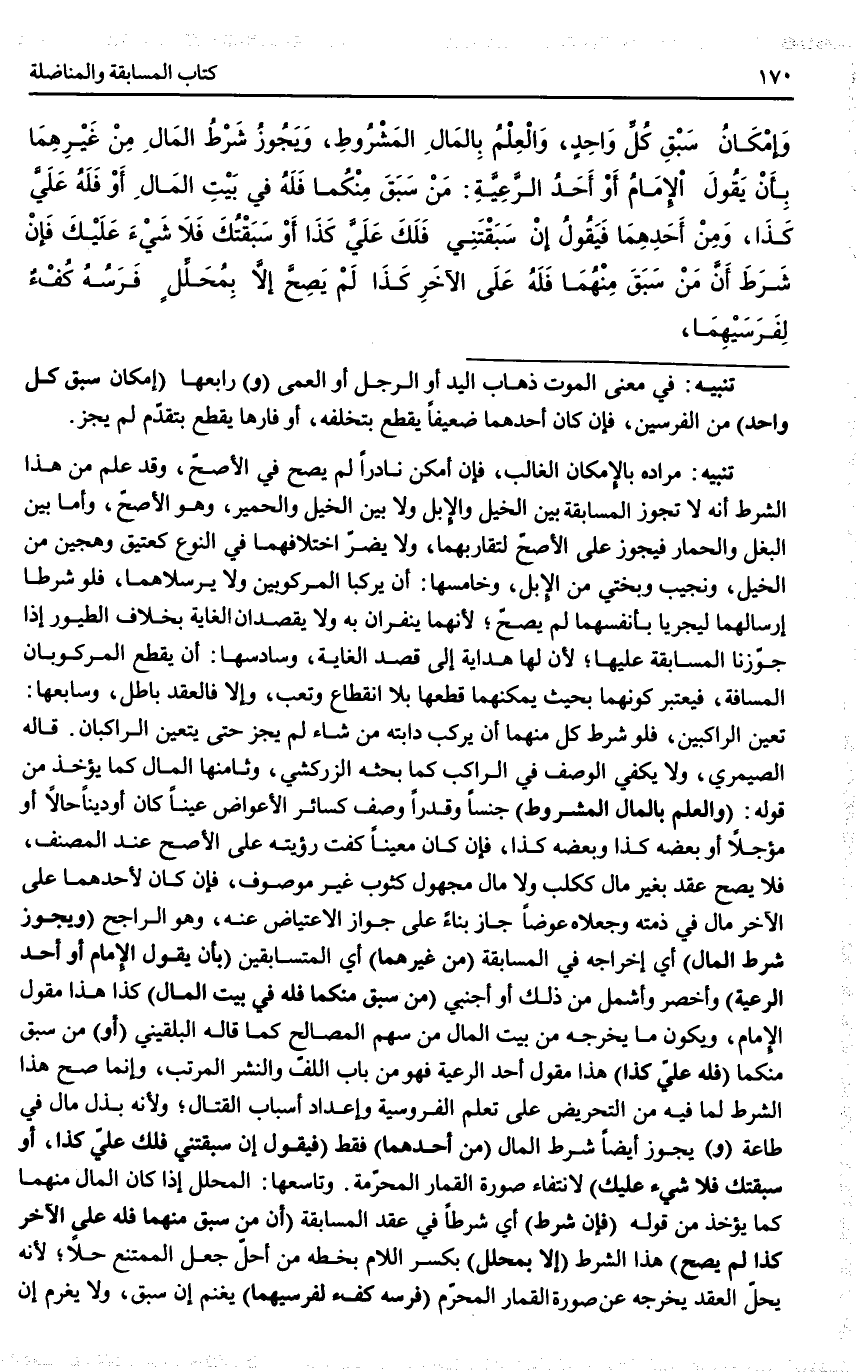 ١٧٠ كتاب المسابقة والمناضلة
وَإِمْكَـانُ سَبْقِ كُلِّ وَاحِدٍ، وَالْعِلْمُ بِالمَالِ المَشْرُوطِ، وَيَجُوزُ شَرْطُ المَالِ مِنْ غَيْرِهِمَا
بِـأَنْ يَقُولَ الإِمَامُ أَوْ أَحَـدُ الـرَّعِيَّـةِ: مَنْ سَبَقَ مِنْكُمـا فَلَهُ في بَيْتِ المَـالِ أَوْ فَلَهُ عَلَيَّ
كَـذَا، وَمِنْ أَحَدِهِمَا فَيَقُولُ إِنْ سَبَقْتَنِـي فَلَكَ عَلَيَّ كَذَا أَوْ سَبَقْتُكَ فَلَا شَيْءَ عَلَيْـكَ فَإِنْ
شَـرَطَ أَنَّ مَنْ سَبَقَ مِنْهُمَـا فَلَهُ عَلَى الآخَرِ كَـذَا لَمْ يَصِحَّ إلَّا بِمُحَلِّلٍ فَـرَسُـهُ كُفْءٌ
لِفَـرَسَيْهِمَـا،
تنبيـه: في معنى الموت ذهـاب اليد أو الـرجـل أو العمى (و) رابعهـا (إمكان سبق كـل
واحد) من الفرسين، فإن كان أحدهما ضعيفاً يقطع بتخلفه، أو فارها يقطع بتقدّم لم يجز.
تنبيه: مراده بالإمكان الغالب، فإن أمكن نـادراً لم يصح في الأصحّ، وقد علم من هـذا
الشرط أنه لا تجوز المسابقة بين الخيل والإبل ولا بين الخيل والحمير، وهـو الأصحّ، وأمـا بين
البغل والحمار فيجوز على الأصحّ لتقاربهما، ولا يضـرّ اختلافهمـا في النوع كعتيق وهجين من
الخيل، ونجيب وبختي من الإبل، وخامسها: أن يركبا المـركوبين ولا يـرسلاهمـا، فلو شرطـا
إرسالهما ليجريا بـأنفسهما لم يصحّ؛ لأنهما ينفـران به ولا يقصـدان الغاية بخـلاف الطيور إذا
جـوّزنا المسـابقة عليها؛ لأن لها هـداية إلى قصـد الغايـة، وسادسهـا: أن يقطع المـركـوبـان
المسافة، فيعتبر كونهما بحيث يمكنهما قطعها بلا انقطاع وتعب، وإلا فالعقد باطل، وسابعها:
تعين الراكبين، فلو شرط كل منهما أن يركب دابته من شـاء لم يجز حتى يتعين الـراكبان. قـاله
الصيمري، ولا يكفي الوصف في الـراكب كما بحثـه الزركشي، وثـامنها المـال كما يؤخـذ من
قوله: (والعلم بالمال المشـروط) جنسـاً وقـدراً وصف كسائـر الأعواض عينـاً كان أو ديناً حالاً أو
مؤجـلاً أو بعضه كـذا وبعضه كـذا، فإن كـان معينـاً كفت رؤيتـه على الأصـح عنـد المصنف،
فلا يصح عقد بغير مال ككلب ولا مال مجهول كثوب غيـر موصـوف، فإن كـان لأحدهمـا على
الآخر مال في ذمته وجعلاه عوضـاً جـاز بناءً على جـواز الاعتياض عنـه، وهو الـراجح (ويجـوز
شرط المال) أي إخراجه في المسابقة (من غيرهما) أي المتسـابقين (بأن يقـول الإمام أو أحـد
الرعية) وأخصر وأشمل من ذلـك أو أجنبي (من سبق منكما فله في بيت المـال) كذا هـذا مقول
الإمام، ويكون مـا يخرجـه من بيت المال من سهم المصـالح كمـا قالـه البلقيني (أو) من سبق
منكما (فله عليّ كذا) هذا مقول أحد الرعية فهو من باب اللفّ والنشر المرتب، وإنما صـح هذا
الشرط لما فيـه من التحريض على تعلم الفـروسية وإعـداد أسباب القتـال؛ ولأنه بـذل مال في
طاعة (و) يجـوز أيضاً شـرط المال (من أحـدهمـا) فقط (فيقـول إن سبقتني فلك عليّ كذا، أو
سبقتك فلا شيء عليك) لانتفاء صورة القمار المحرّمة. وتاسعها: المحلل إذا كان المال منهمـا
كما يؤخذ من قولـه (فإن شرط) أي شرطاً في عقد المسابقة (أن من سبق منهما فله على الآخر
كذا لم يصح) هذا الشرط (إلا بمحلل) بكسر اللام بخطه من أحلّ جعـل الممتنع حـلاً؛ لأنه
يحلّ العقد يخرجه عن صورة القمار المحرّم (فرسه كفء لفرسيهما) يغنم إن سبق، ولا يغرم إن